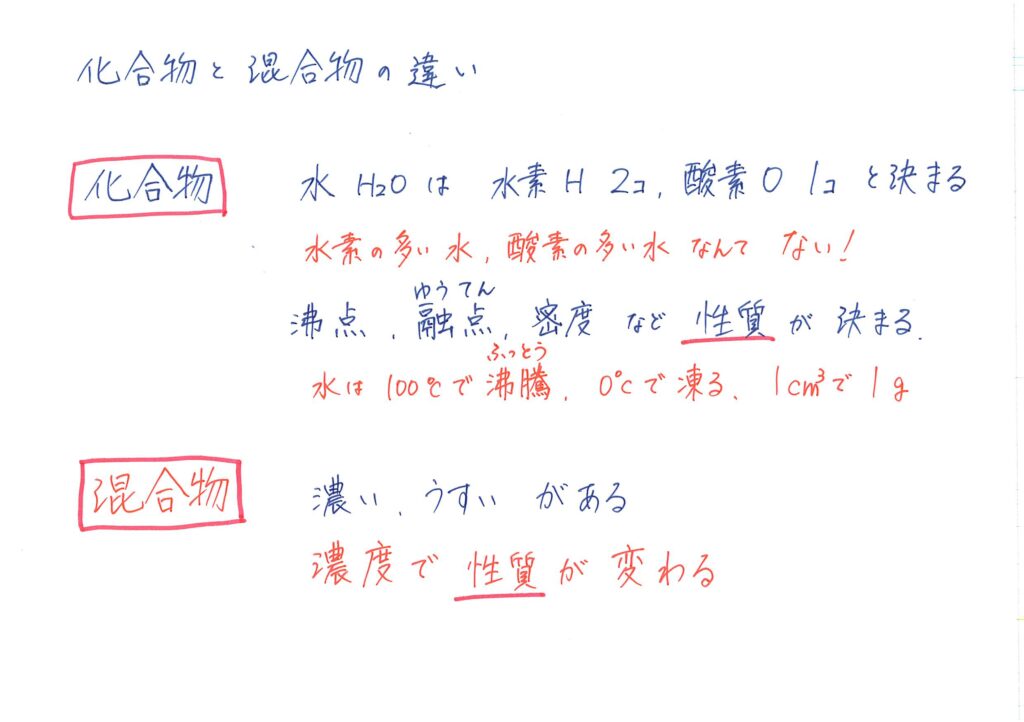 化合物と混合物の違い
化合物 水 H2Oは 水素H 2コ, 酸素O 1コ と決まる
水素の多い水, 酸素の多い水 なんて ない!
ゆうてん
沸点, 融点, 密度 など 性質 が 決まる.
ふっとう
水は 100℃で沸騰, 0℃で凍る、1cm³で1g
混合物 濃い, うすい がある
濃度で 性質 が 変わる